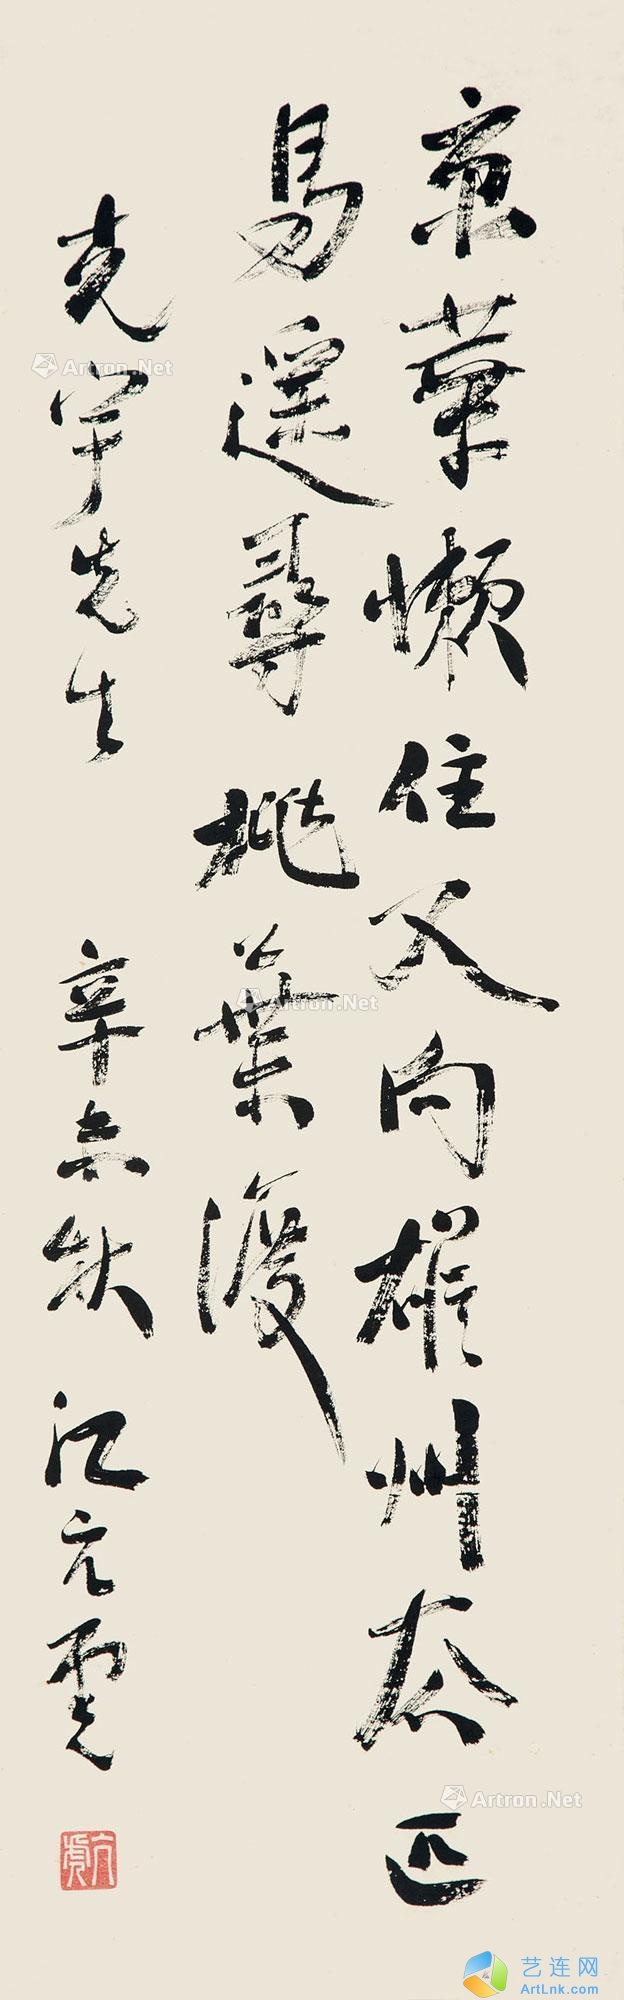 京華懶住又向雄州去匹
馬遥尋桃葉渡
克宇先生 辛未秋 江亢虎
亢虎
Artron.Net
Artron.Net
Artron.Net
艺连网
ArtLnk.com